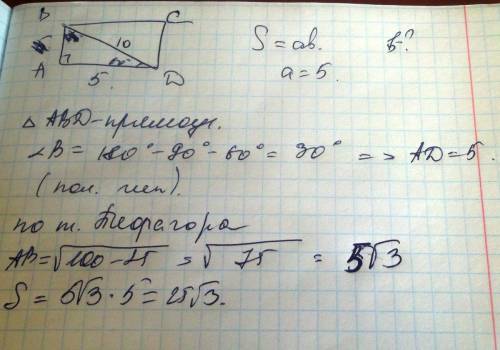 B C
10
A 5 D
60°
S = ab. b-?
a = 5.
△ ABD - прямоуг.
∠B = 180° - 90° - 60° = 30° => AD = 5.
(пол. гип).
по т. Пифагора
AB = √100 - 25 = √75 = 5√3
S = 5√3 · 5 = 25√3.